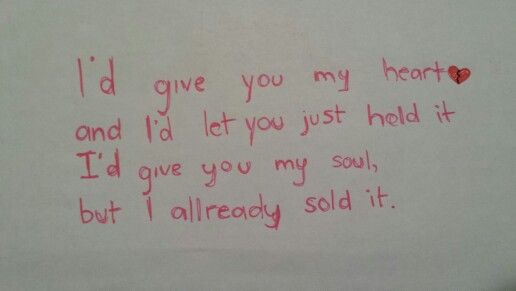 I'd give you my heart
and I'd let you just hold it
I'd give you my soul,
but I allready sold it.